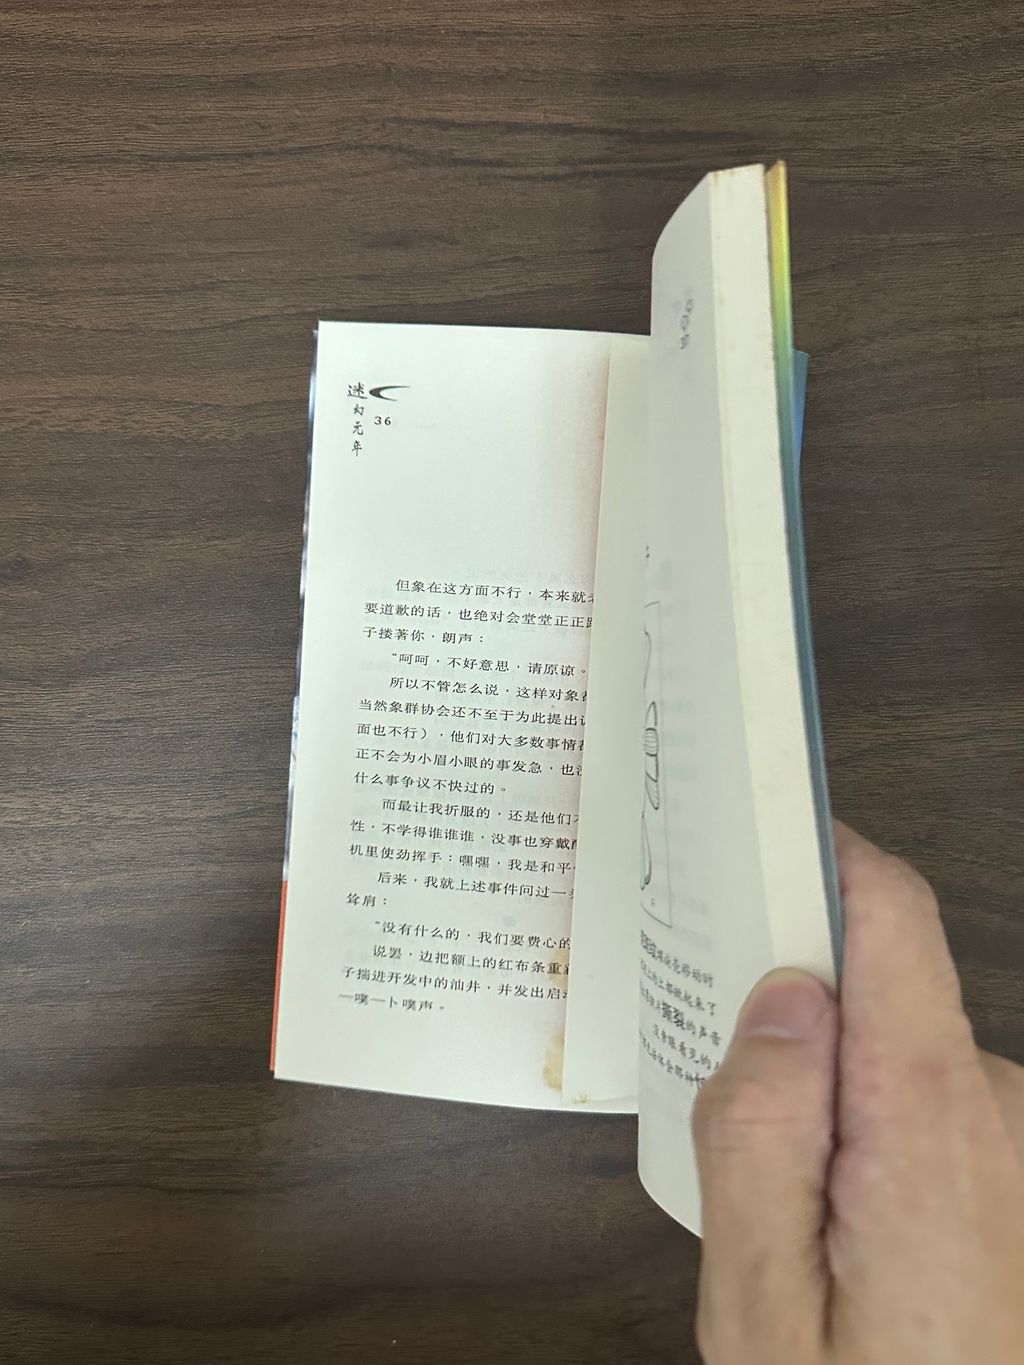 迷幻元年
36
但象在这方面不行，本来就
要道歉的话，也绝对会堂堂正正
子搂著你，朗声：
“呵呵，不好意思，请原谅。
所以不管怎么说，这样对象
当然象群协会还不至于为此提出
面也不行），他们对大多数事情
正不会为小眉小眼的事发急，也
什么事争议不快过的。
而最让我折服的，还是他们
性，不学得谁谁谁，没事也穿戴
机里使劲挥手：嘿嘿，我是和平
后来，我就上述事件问过一
耸肩：
“没有什么的，我们要费心的
说罢，边把额上的红布条重
子揣进开发中的油井，并发出启
一噗一卜噗声。
移动时
起来了
撕裂的声音
看见的
体会那种